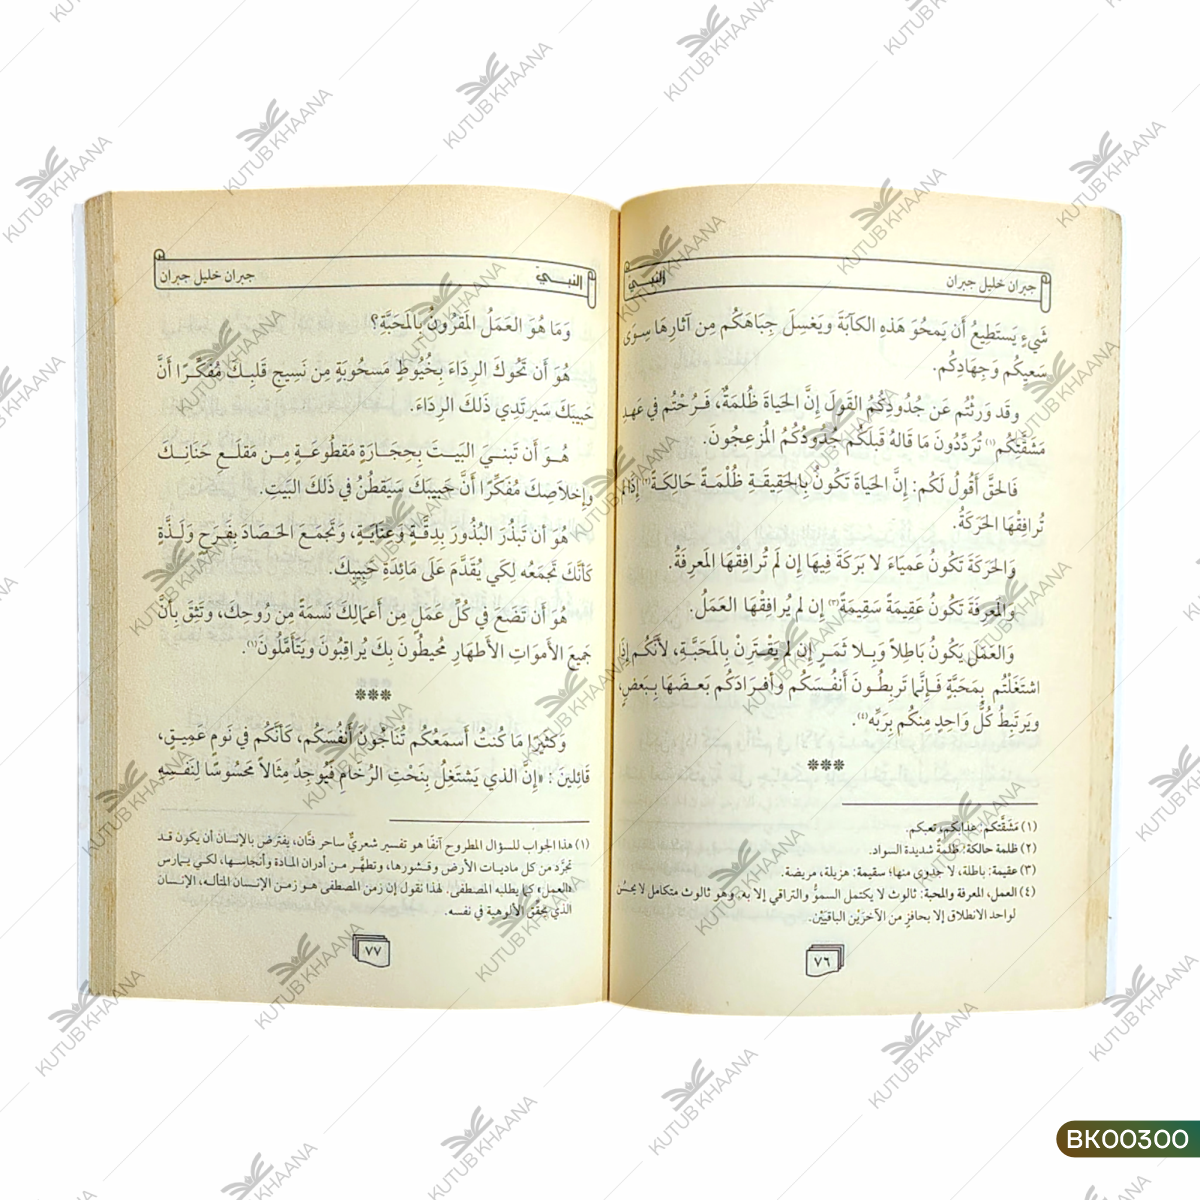 جبران خليل جبران
النبــيّ
شَيءٍ يَستَطِيعُ أَن يَمحُوَ هَذِهِ الكآبَةَ وَيَغسِلَ جِبَاهَكُم مِن آثارِهَا سِوَى
سَعيِكُم وَجِهَادِكُم.
وقَد وَرِثتُم عَن جُدُودِكُمُ القَولَ إِنَّ الحَيَاةَ ظُلمَةٌ، فَرُحْتُم في عَهدِ
مَشَقَّتِكُم(١) تُرَدِّدُونَ مَا قالهُ قَبلَكُم جُدُودُكُمُ المُزعِجُونَ.
فَالحَقَّ أَقُولُ لَكُم: إِنَّ الحَيَاةَ تَكُونُ بِالحَقِيقَةِ ظُلْمَةً حَالِكَةً(٢) إِذَا لَم
تُرافِقْهَا الحَرَكَةُ.
وَالحَرَكَةَ تَكُونُ عَميَاءَ لا بَرَكَةَ فِيهَا إِن لَم تُرافِقْهَا المَعرِفَةُ.
وَالمَعرِفَةَ تَكُونُ عَقِيمَةً سَقِيمَةً(٣) إِن لَم يُرافِقهَا العَمَلُ.
وَالعَمَلَ يَكُونُ بَاطِلاً وَبِلا ثَمَرٍ إِن لَم يَقْتَرِنْ بِالمَحَبَّةِ، لأَنَّكُم إِذَا
اشتَغَلْتُم بِمَحَبَّةٍ فَإِنَّمَا تَربِطُونَ أَنفُسَكُم وأَفرادَكُم بَعضَهَا بِبَعضٍ،
ويَرتَبِطُ كُلُّ وَاحِدٍ مِنكُم بِرَبِّه(٤).
***
(١) مَشَقَّتِكم: عذابكم، تعبكم.
(٢) ظلمة حالكة: ظلمة شديدة السواد.
(٣) عقيمة: باطلة، لا جدوى منها؛ سقيمة: هزيلة، مريضة.
(٤) العمل، المعرفة والمحبة: ثالوث لا يكتمل السموُّ والتراقي إلا به، وهو ثالوث متكامل لا يحسُن
لواحد الانطلاق إلا بحافزٍ من الآخرَيْن الباقيَيْن.
٧٦
النبــيّ
جبران خليل جبران
وَمَا هُوَ العَمَلُ المَقرُونُ بِالمَحَبَّةِ؟
هُوَ أَن تَحُوكَ الرِدَاءَ بِخُيُوطٍ مَسحُوبَةٍ مِن نَسِيجِ قَلبِكَ مُفَكِّرًا أَنَّ
حَبِيبَكَ سَيرتَدِي ذَلكَ الرِدَاءَ.
هُوَ أَن تَبنيَ البَيتَ بِحِجَارَةٍ مَقطُوعَةٍ مِن مَقلَعِ حَنَانِكَ
وإخلاصِكَ مُفَكِّرًا أَنَّ حَبِيبَكَ سَيَقطُنُ في ذَلكَ البَيتِ.
هُوَ أَن تَبذُرَ البُذُورَ بِدِقَّةٍ وَعِنَايَةٍ، وَتَجمَعَ الحَصَادَ بِفَرَحٍ وَلَذَّةٍ
كَأَنَّكَ تَجمَعُه لِكَي يُقَدَّمَ عَلَى مَائِدَةِ حَبِيبِكَ.
هُوَ أَن تَضَعَ في كُلِّ عَمَلٍ مِن أَعمَالِكَ نَسَمَةً مِن رُوحِكَ، وَتَثِقَ بِأَنَّ
جَمِيعَ الأَمواتِ الأَطهَارِ مُحيطُونَ بِكَ يُراقِبُونَ وَيَتَأَمَّلُونَ(١).
***
وَكَثيرًا مَا كُنتُ أَسمَعُكُم تُنَاجُونَ أَنفُسَكُم، كَأَنَّكُم في نَومٍ عَمِيقٍ،
قَائِلينَ: «إنَّ الذي يَشتَغِلُ بِنَحْتِ الرُخَامِ فَيُوجِدُ مِثَالاً مَحسُوسًا لنَفسِهِ
(١) هذا الجواب للسؤال المطروح آنفًا هو تفسير شعريٌّ ساحر فتّان، يفترض بالإنسان أن يكون قد
تجرّد من كل ماديات الأرض وقشورها، وتطهّر من أدران المادة وأنجاسها، لكي يمارس
«العمل» كما يطلبه المصطفى. لهذا نقول إن زمن المصطفى هو زمن الإنسان المتأله، الإنسان
الذي يحقق الألوهية في نفسه.
٧٧
KUTUB KHAANA
BK00300